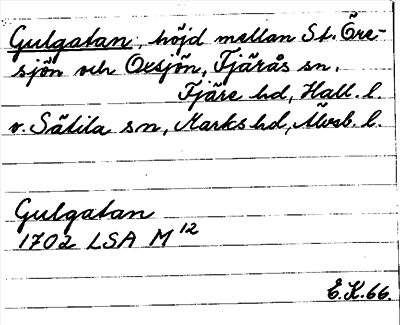 Gulgatan, höjd mellan St. Öre-
sjön och Oxsjön, Fjärås sn,
Fjäre hd, Hall. l.
v. Sätila sn, Marks hd, Älvsb. l.
Gulgatan
1702 LSA M 12
E.K.66.